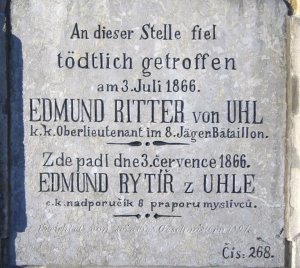 An dieser Stelle fiel
tödtlich getroffen
am 3. Juli 1866.
EDMUND RITTER von UHL
k.k. Oberlieutenant im 8. Jäger Bataillon.
Zde padl dne 3. července 1866.
EDMUND RYTÍŘ z UHLE
c.k. nadporučík 8 praporu myslivců.
Čís: 268.